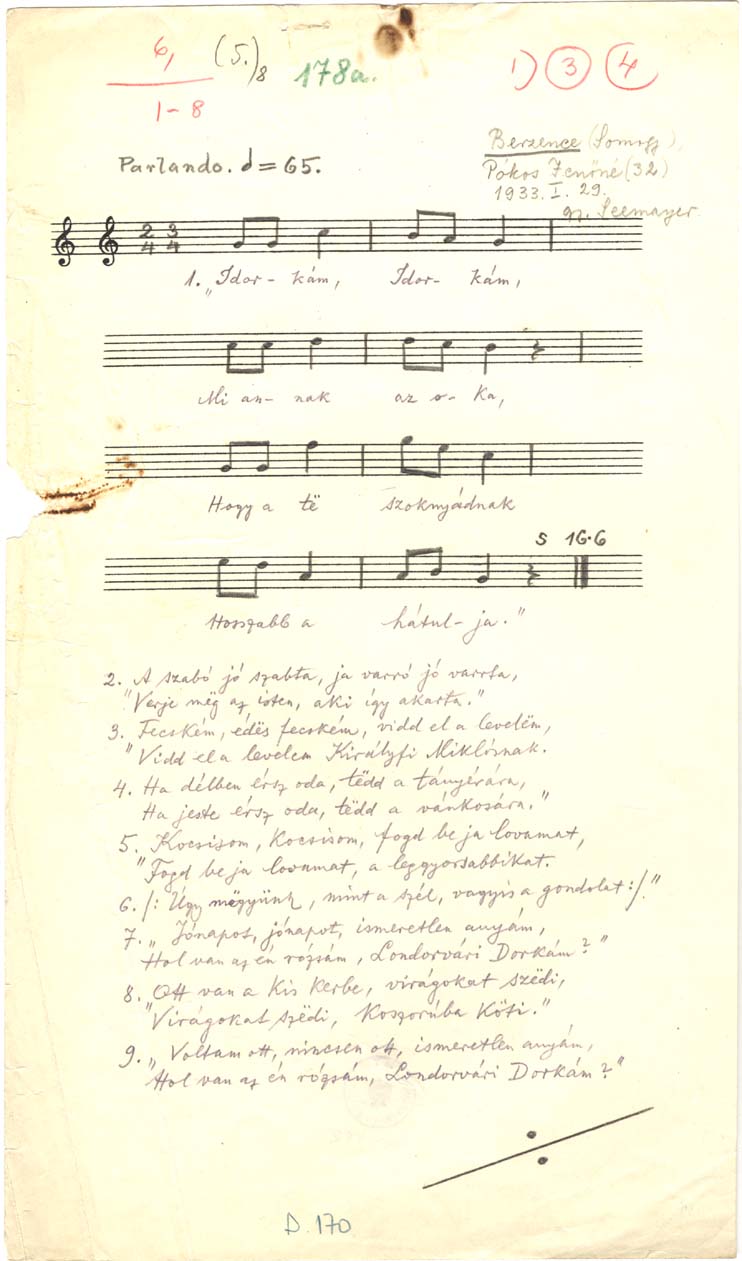 6, (5.)8 178a. 1) 3 4
1-8
Berzence (Somogy),
Parlando. = 65.
Pókos Jenőné (32)
1933. I. 29.
gy. Seemayer
2 3
4 4
1. "Idor- kám, Idor- kám,
Mi an- nak az o- ka,
Hogy a të szoknyádnak
S 16·6
Hosszabb a hátul- ja."
2. "A szabó jó szabta, ja varró jó varrta,
Verje mëg az isten, aki így akarta."
3. "Fecském, édës fecském, vidd el a levelëm,
Vidd el a levelem Királyfi Miklósnak.
4. Ha délben érsz oda, tëdd a tányérára,
Ha jeste érsz oda, tëdd a vánkosára."
5. "Kocsisom, kocsisom, fogd be ja lovamat,
Fogd be ja lovamat, a leggyorsabbikat.
6. /: Úgy mëgyünk, mint a szél, vagyis a gondolat :/."
7. "Jónapot, jónapot, ismeretlen anyám,
Hol van az én rózsám, Londorvári Dorkám?"
8. "Ott van a kis kerbe, virágokat szëdi,
Virágokat szëdi, koszorúba köti."
9. "Voltam ott, nincsen ott, ismeretlen anyám,
Hol van az én rózsám, Londorvári Dorkám?"
D. 170